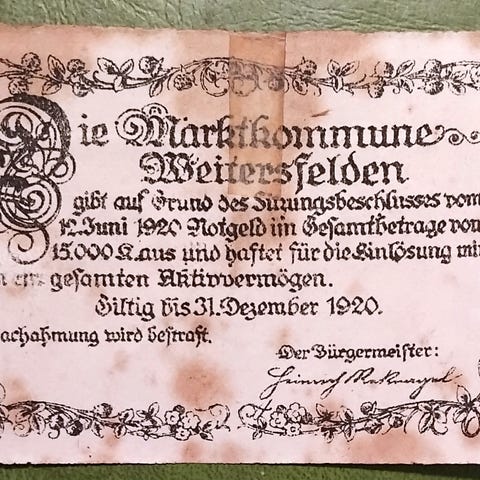 Die Marktkommune
Weitersfelden
gibt auf Grund des Sitzungsbeschlusses vom
12. Juni 1920 Notgeld im Gesamtbetrage von
15.000 K. aus und haftet für die Einlösung mi
gesamten Aktivvermögen.
Giltig bis 31. Dezember 1920.
achahmung wird bestraft.
Der Bürgermeister:
Heinrich